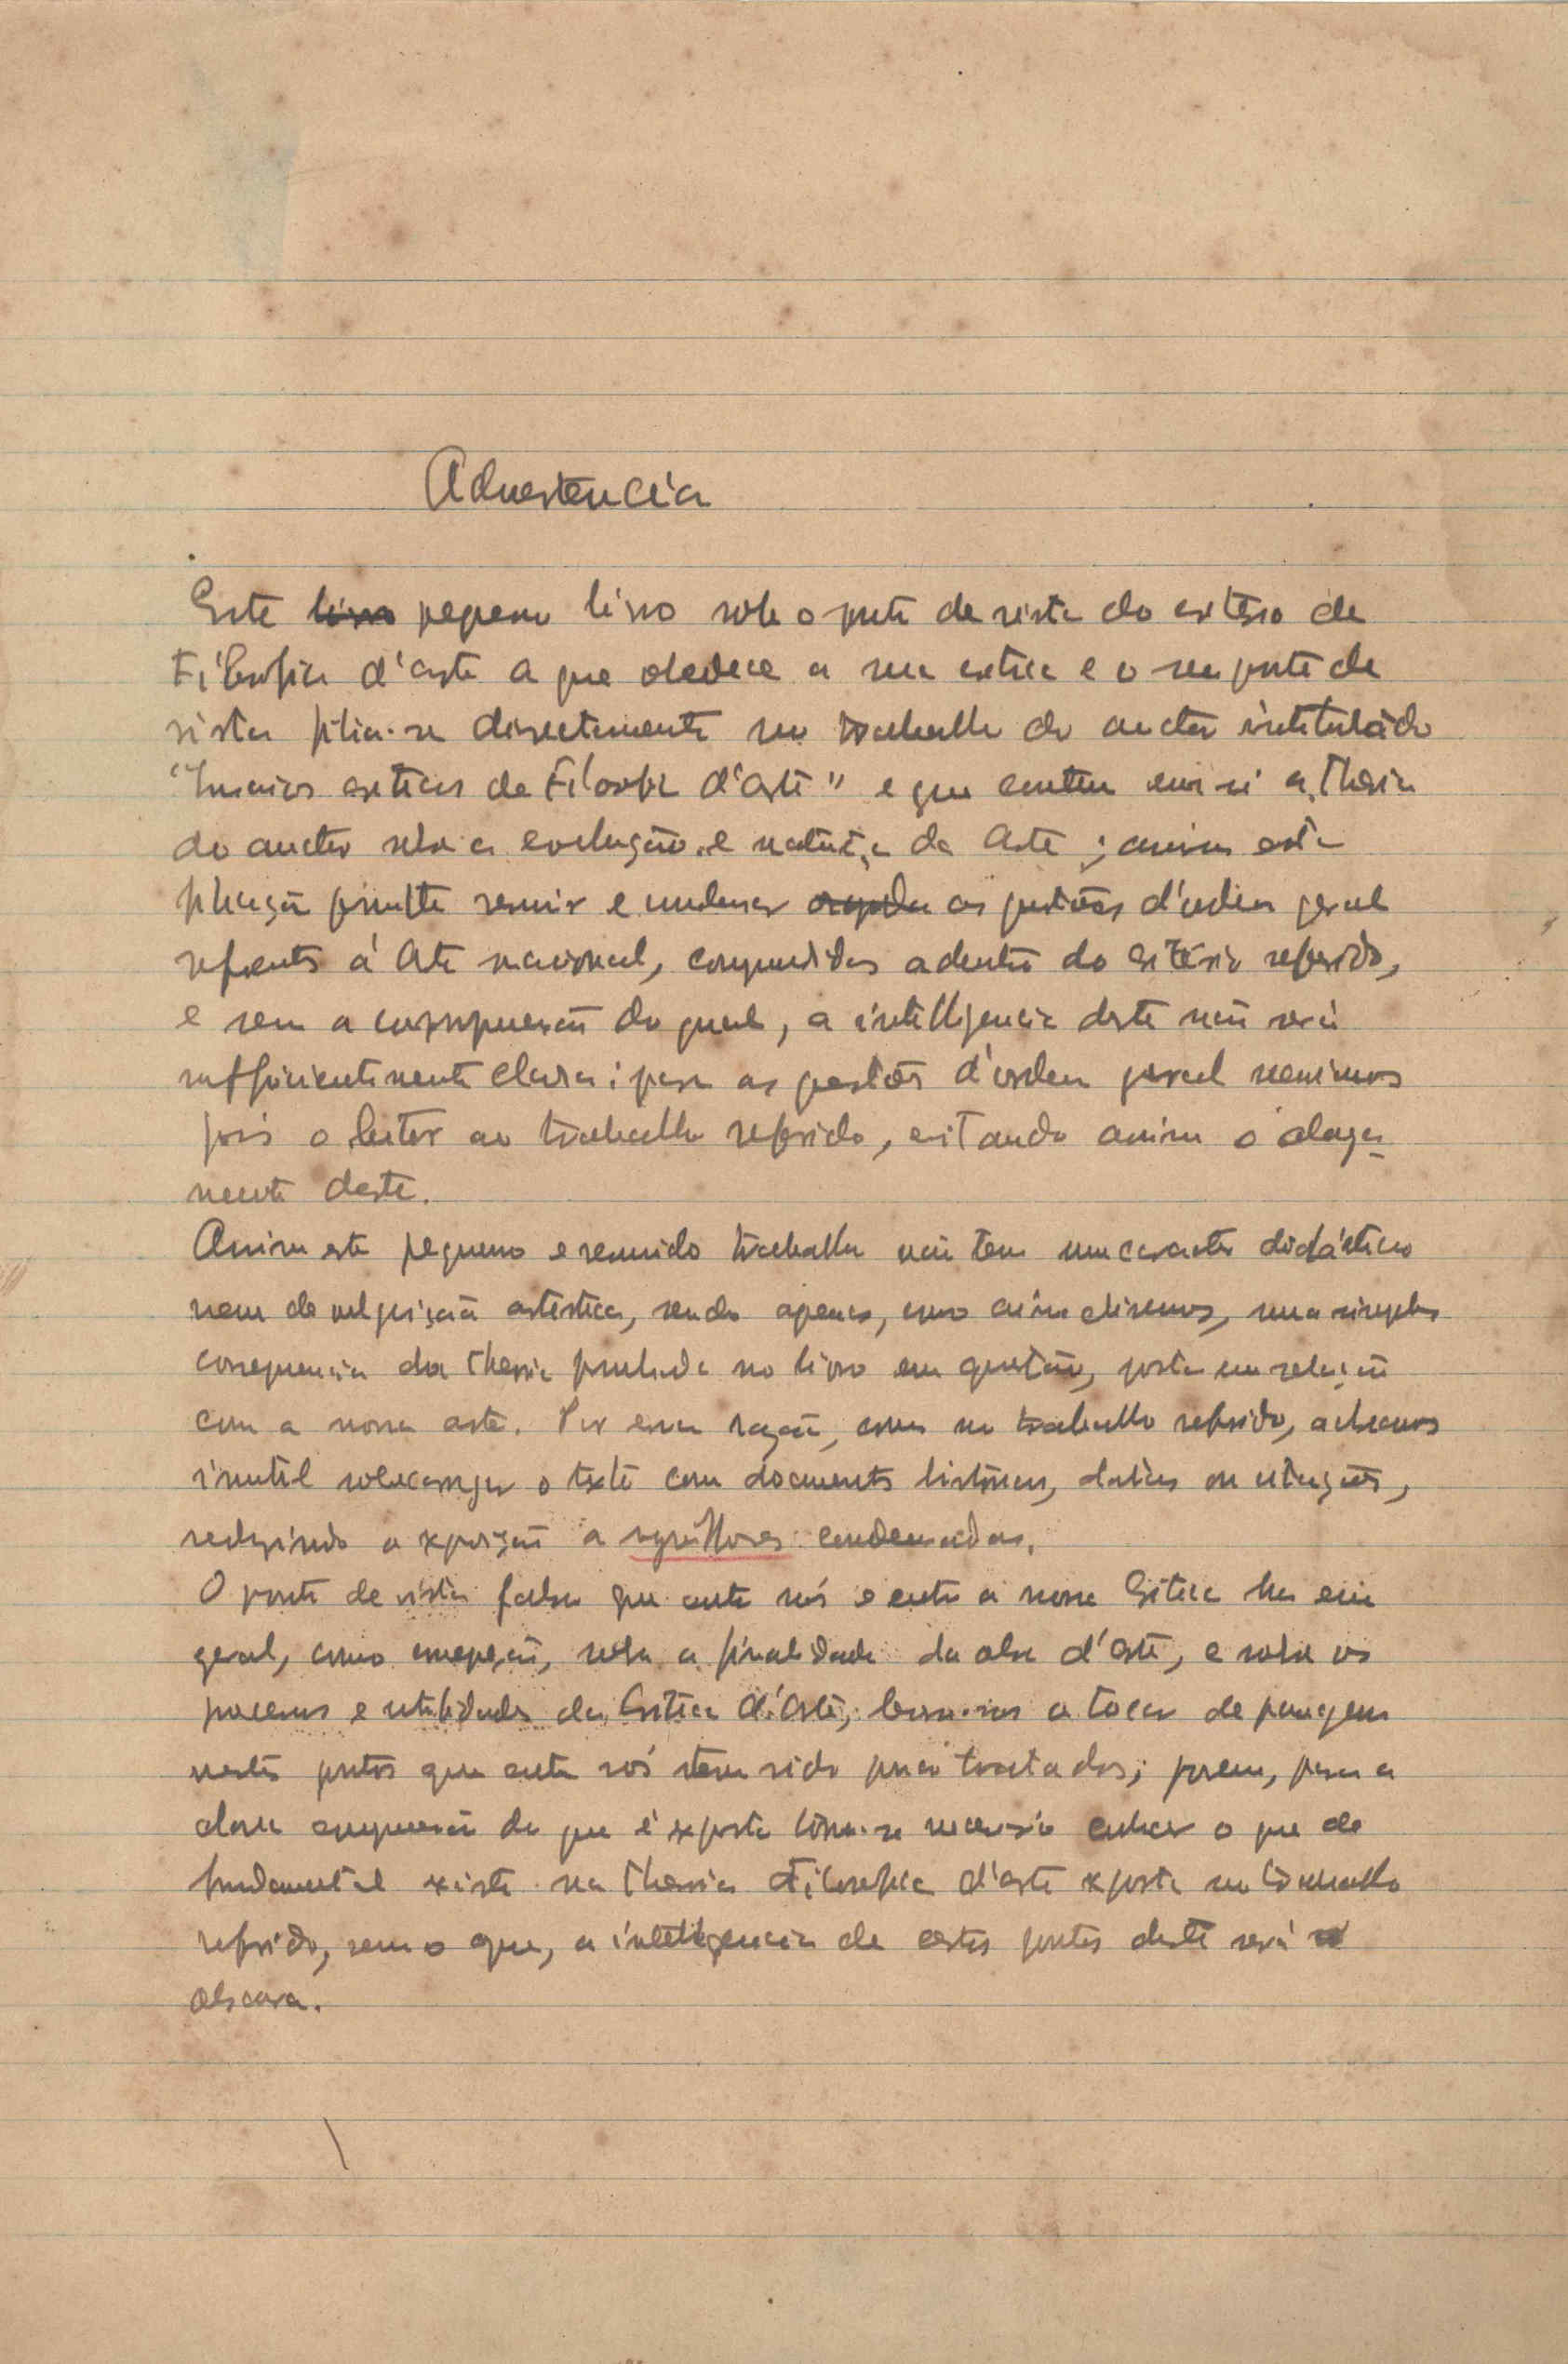 Advertencia
Este livro pequeno livro sob o ponto de vista do criterio de
Filosofia d'arte a que obedece a sua critica e o seu ponto de
vista filia-se directamente no trabalho do auctor intitulado
"Ensaios criticos de Filosofia d'Arte" e que contem em si a theoria
do auctor sobre a evolução e natureza da Arte; assim esta
filiação permitte resumir e condensar as questões d'ordem geral
referentes á Arte nacional, comprendidas adentro do criterio referido,
e sem a comprensão do qual, a intelligencia deste não será
sufficientemente clara; para as questões d'ordem geral
pois o leitor ao trabalho referido, evitando assim o alonga-
mento deste.
Assim este pequeno e resumido trabalho não tem um caracter didáctico
nem de vulgarização artistica, sendo apenas, como acima dissemos, uma simples
consequencia da theoria formulada no livro em questão, posta em relação
com a nossa arte. Por essa razão, como no trabalho referido, achamos
inutil sobrecarregar o texto com documentos historicos, datas ou citações,
reduzindo a exposição a condensadas.
O ponto de vista falso que entre nós e entre a nossa Critica ha em
geral, como concepção, sobre a finalidade da obra d'arte, e sobre os
processos e utilidade da Critica d'Arte, leva-nos a tocar de passagem
nestes pontos que entre nós tem sido pouco tratados; porem, para a
clara comprensão do que é exposto torna-se necessario conhecer o que de
fundamental existe na theoria Filosofica d'arte exposta no trabalho
referido, sem o que, a intelligencia de certos pontos deste será
obscura.